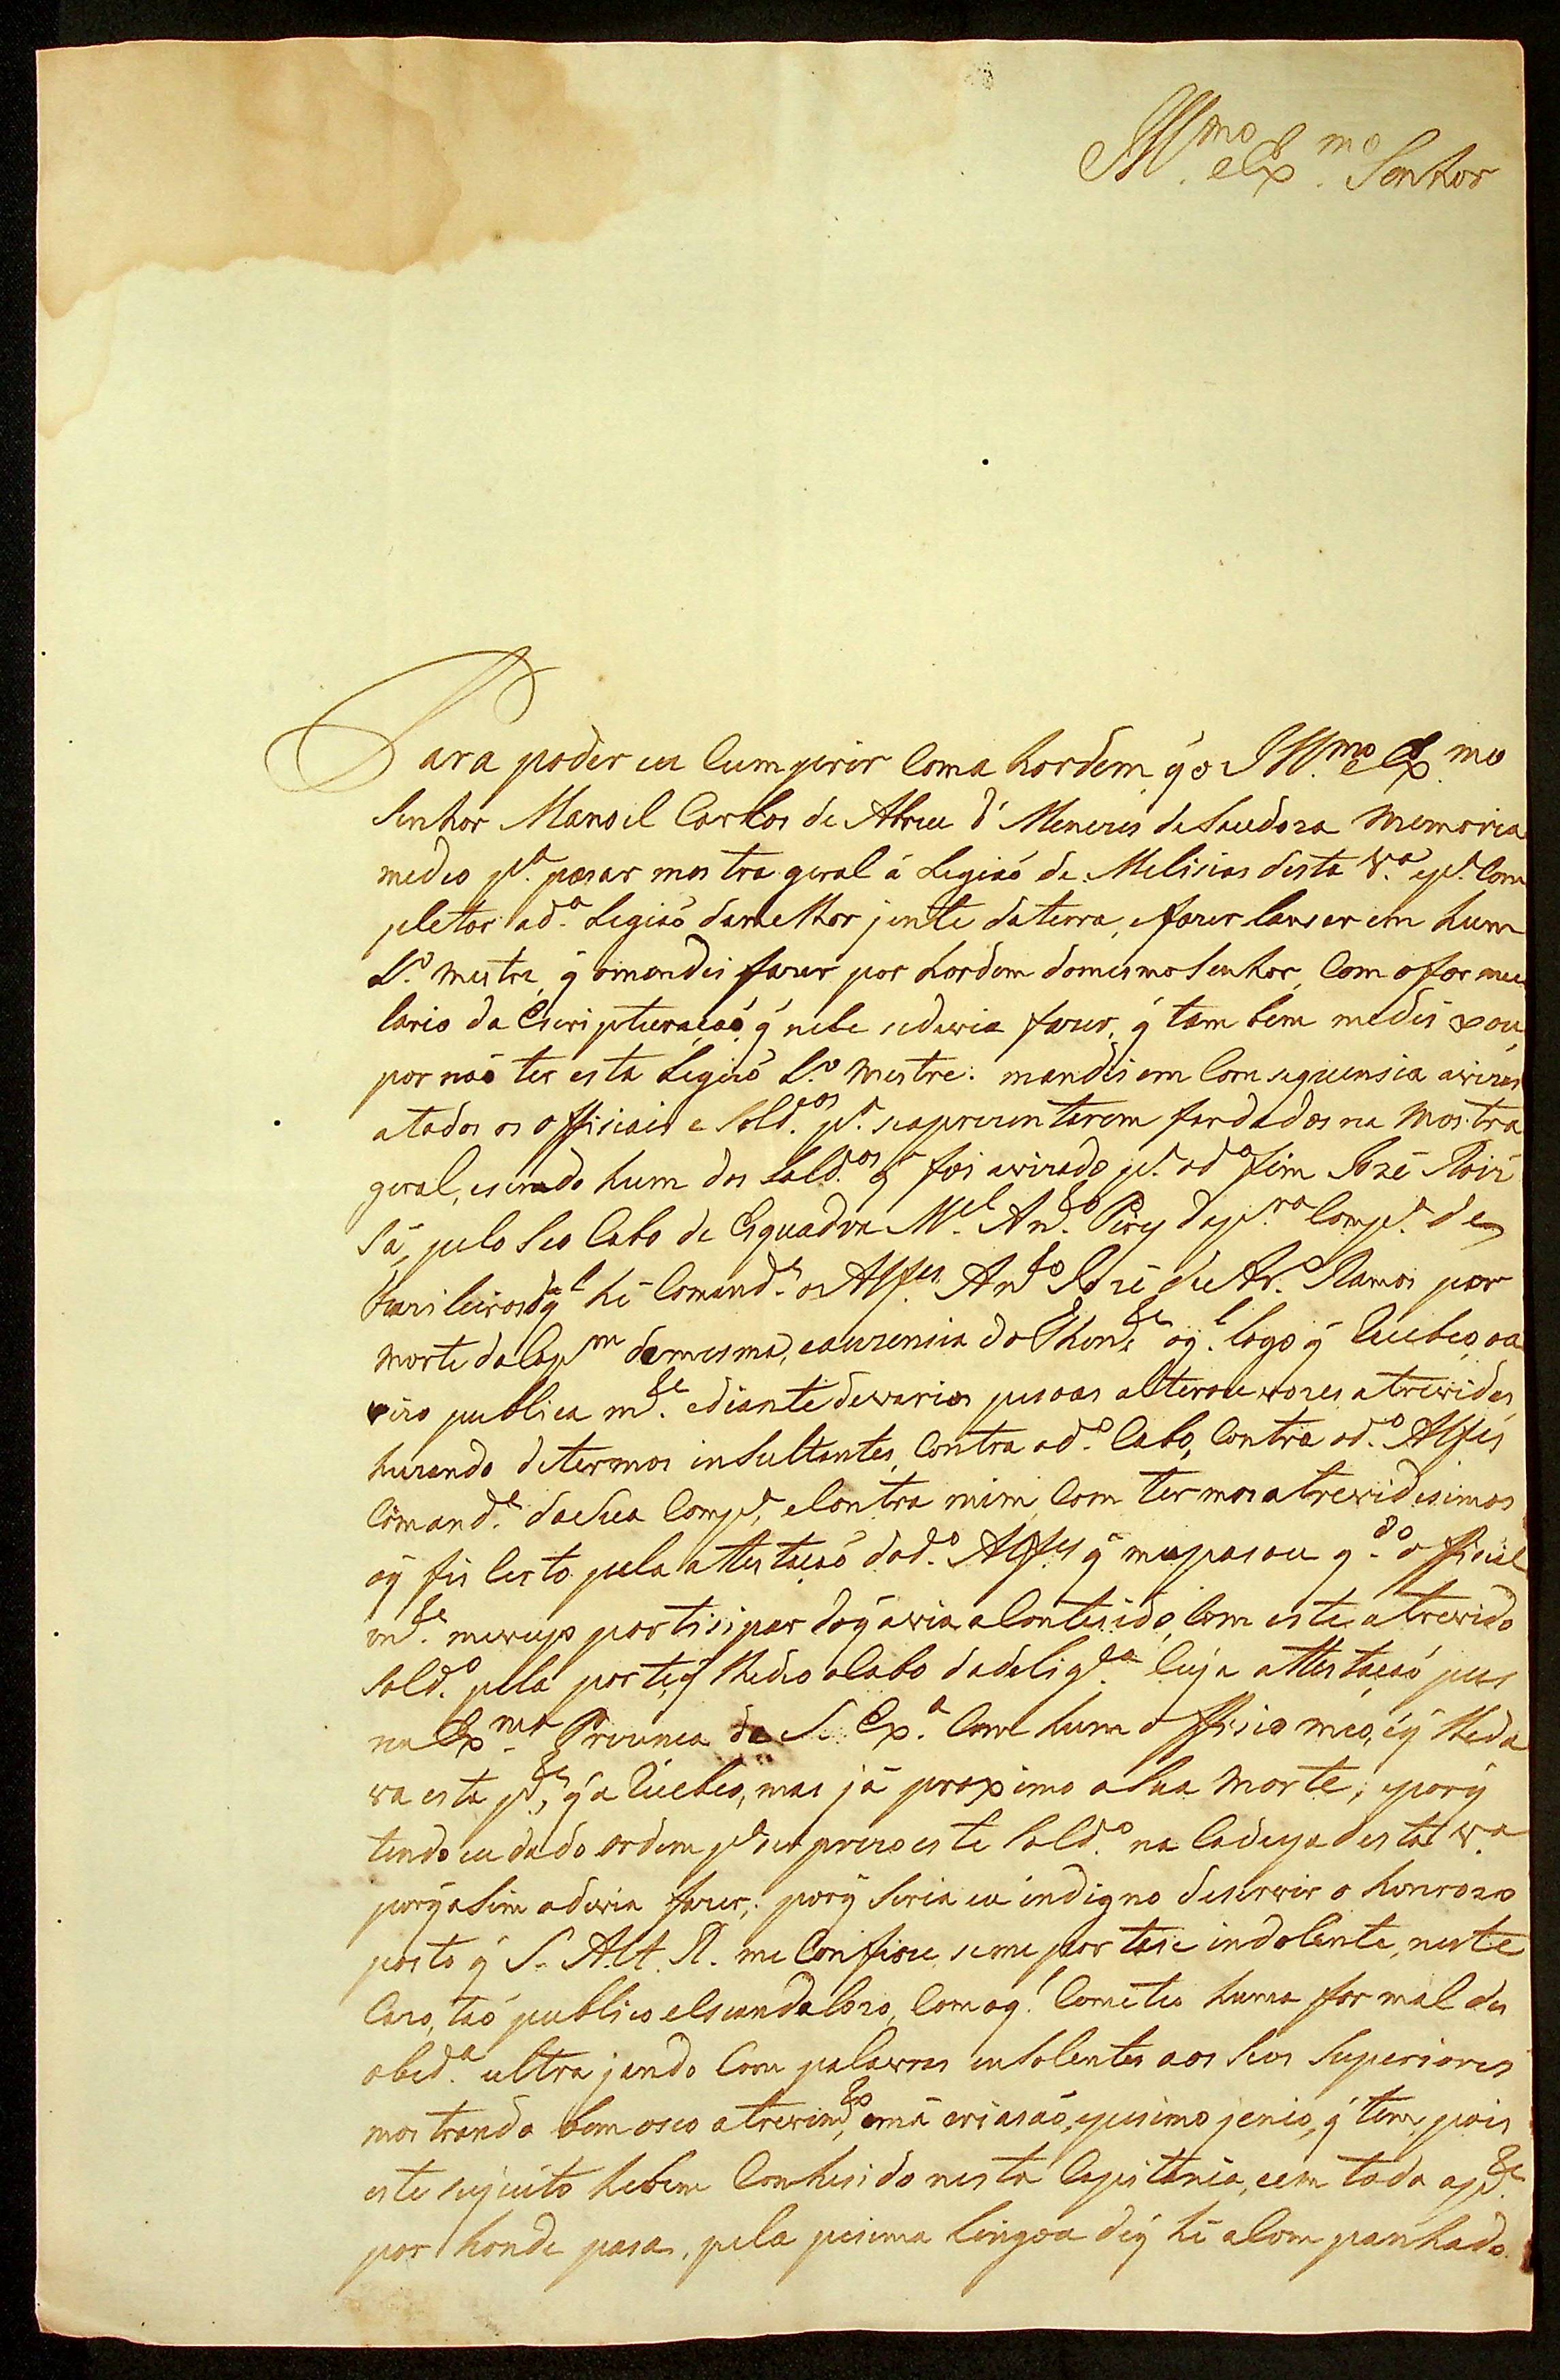 Ill.mo e Ex.mo Senhor
Para poder eu Cumprir Coma hordem q̃ o Ill.mo e Ex.mo
Senhor Manoel Carlos de Abreu d' Menezes de Saudoza Memoria
medeo p.ª pasar mostra geral á Legiaõ de Milisias desta V.ª e p.ª Com
pletar ad.ª Legiaõ damelhor jente daterra, efazer lanser em hum
L.º Mestre, q̃ omandei fazer por hordem domesmo Senhor, Com o formu
lario da Escripturaçaõ, q̃ nele sedevia fazer, q̃ tambem medeixou,
por naõ ter esta Legiaõ L.º Mestre: mandei em Comsequensia avizar
atodos os offisiais e Sold.os p.ª seaprezentarem fardados na Mostra
geral, esendo hum dos Sold.os q̃ foi avizado p.ª od.º fim Jozé Roiz
Sá, pelo Seo Cabo de Esquadra M.el An.to Pirz dap.ra Comp.ª de
Fuzileiros dq.l hé Comand.e o Alfes An.to Jozé de Ar.º Ramos por
morte do Cap.m damesma, eauzensia do Then.te oq.l logo q̃ Recebeo oa
vizo publica m.te ediante devarios pesoas alterou vozes atrevidas,
huzando determos insultantes, Contra od.º Cabo, Contra od.º Alfes
Comand.e daSua Comp.ª, eContra mim, Com termos atrevidisimos
oq̃ fis Certo pela attestaçaõ dod.º Alfes q̃ mepasou q.do offisial
m.te meveyo partisipar doq̃ avia aContesido, Com este atrevido
Sold.º pela parte, q̃ lhedeo oCabo dadelig.ª Cuja attestaçaõ pus
na Ex.ma Prezença de S. Ex.ª Com hum offisio meo, eq̃ lheda
va esta p.te, q̃ a Recebeo, mas já proximo aSua Morte; eporq̃
tendo eu dado ordem p.ª ser prezo este Sold.º na Cadeya desta V.ª
porq̃ asim odevia fazer; porq̃ Seria eu indigno deservir o honrozo
posto q̃ S. Alt. R. me Confiou, seme portase indolente, neste
Cazo, taõ publico eescandalozo, Com oq.l Cometeo huma formal dez
obed.ª ultrajando Com palavras insolentes aos Seos Superiores
mostrando bem oseo atrevim.to, emá criasaõ, epesimo jenio, q̃ tem, pois
este sujeito hebem Conhesido nesta Capitania, eem toda ap.te
por honde pasa, pela pesima lingoa deq̃ hé aCompanhado.